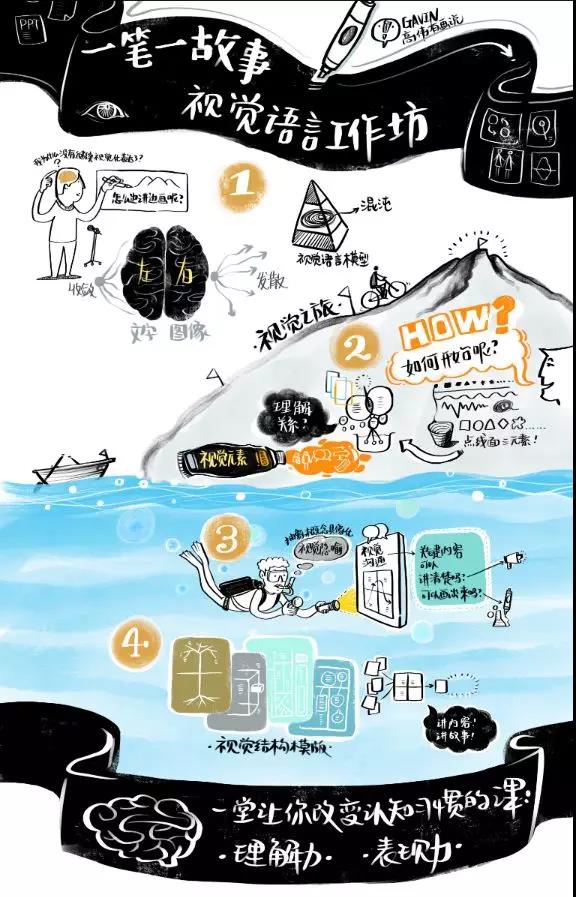 PPT
GAVIN
高伟有画说
一笔一故事
视觉语言工作坊
1
怎么边讲边画呢?
混沌
视觉语言模型
左 右
收敛
发散
文字 图像
视觉之旅
2
HOW?
如何开始呢?
理解
关系?
点线面三元素!
视觉元素
3
抽象概念具像化
视觉隐喻
视觉
沟通
关键内容
可以
讲清楚吗?
可以画出来吗?
4.
讲内容!
讲故事!
·视觉结构模版·
一堂让你改变认知习惯的课:
·理解力· 表现力·